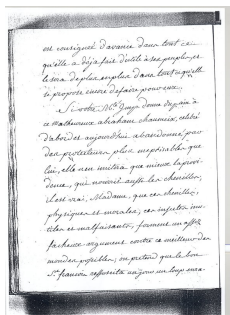 est consignée d'avance dans tout ce
qu'elle a déja fait d'utile à ses peuples, et
le sera de plus en plus dans tout ce qu'elle
se propose encore de faire pour eux.
Si votre M. I. donne du pain à
ce malheureux abraham chaumeix,
d'abord et aujourd'hui abandonné par
des protecteurs plus méprisables que
lui, elle en imitera que mieux la provi-
dence, qui nourrit aussi les chenilles;
il est vrai, Madame, que ces chenilles,
physiques et morales, ces insectes inu-
tiles et malfaisants, forment un assez
facheux argument contre ce meilleur des
mondes possibles; on prétend que le bon
St francois ressuscita un jour un loup